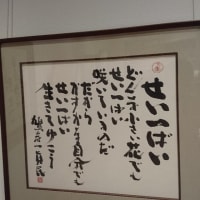 せいいっぱい
どんな小さい花でも
せいいっぱい
咲いているのだ
だから
かすかな自分でも
せいいっぱい
生きてゆこう